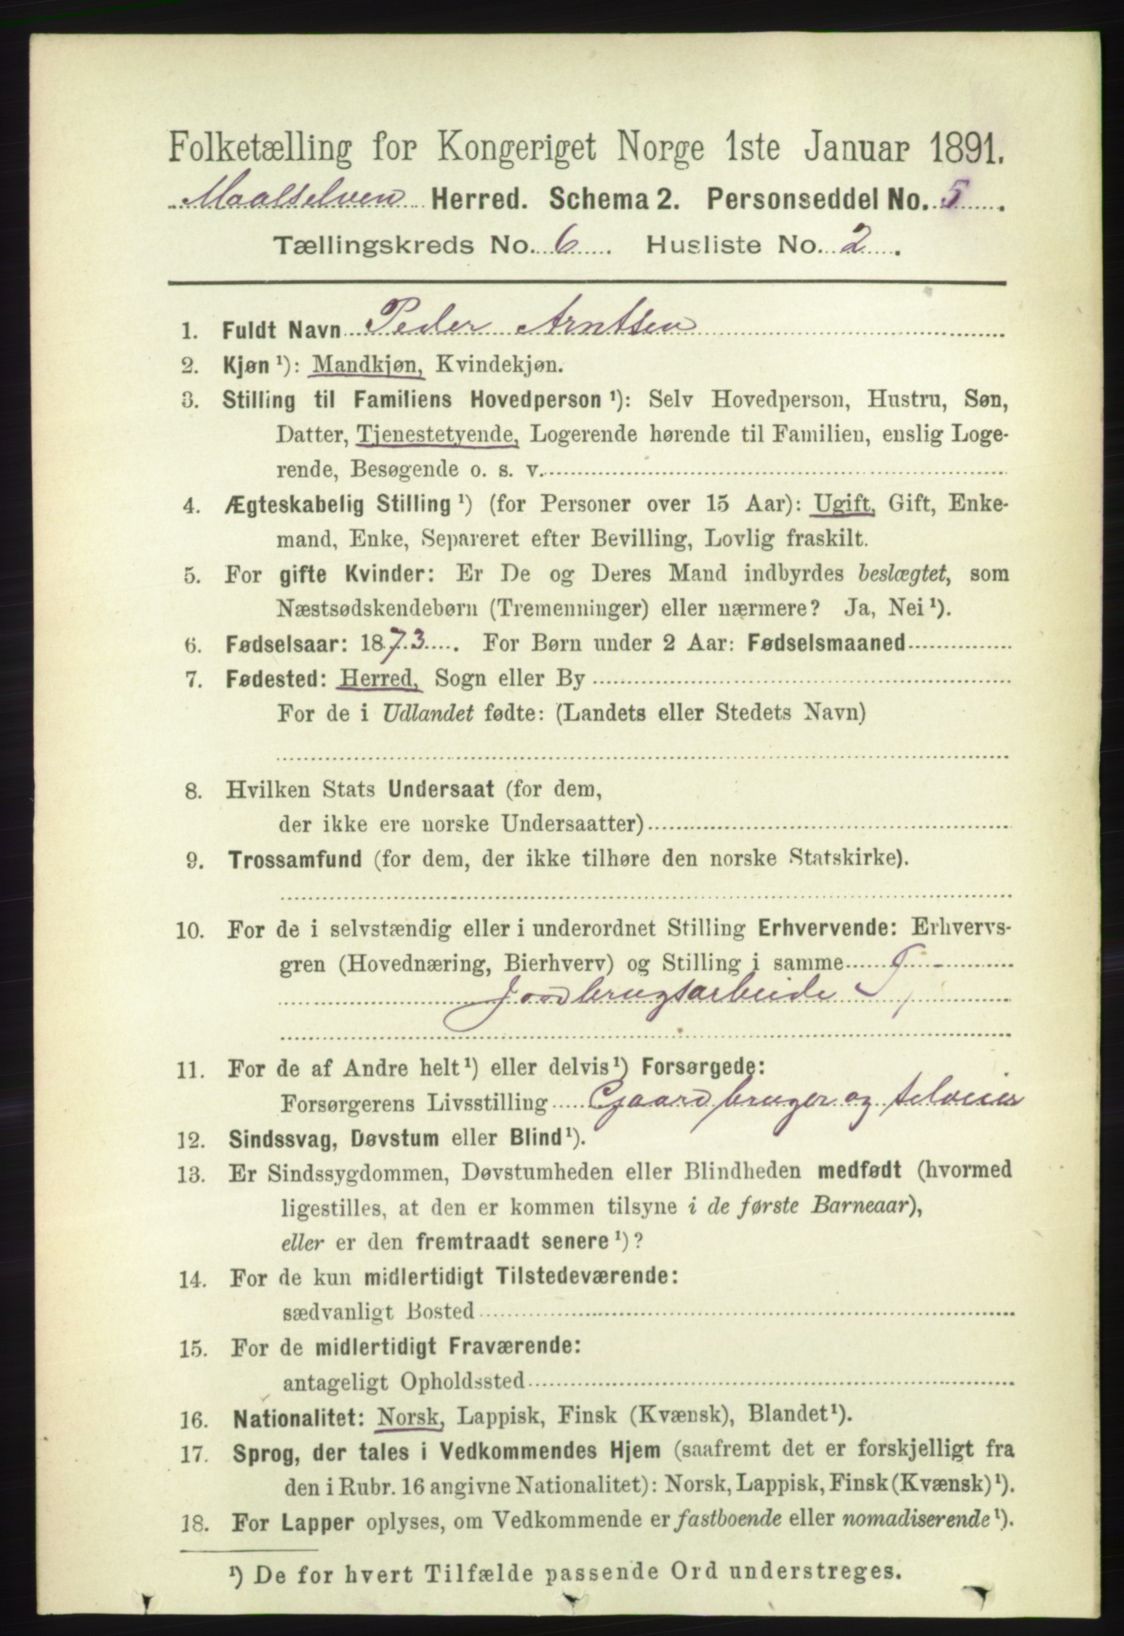 Folketælling for Kongeriget Norge 1ste Januar 1891.
Maalselven Herred. Schema 2. Personseddel No. 5.
Tællingskreds No. 6. Husliste No. 2.
1. Fuldt Navn Peder Arntsen
2. Kjøn ¹): Mandkjøn, Kvindekjøn.
3. Stilling til Familiens Hovedperson ¹): Selv Hovedperson, Hustru, Søn,
Datter, Tjenestetyende, Logerende hørende til Familien, enslig Loge-
rende, Besøgende o. s. v.
4. Ægteskabelig Stilling ¹) (for Personer over 15 Aar): Ugift, Gift, Enke-
mand, Enke, Separeret efter Bevilling, Lovlig fraskilt.
5. For gifte Kvinder: Er De og Deres Mand indbyrdes beslægtet, som
Næstsødskendebørn (Tremenninger) eller nærmere? Ja, Nei ¹).
6. Fødselsaar: 1873. For Børn under 2 Aar: Fødselsmaaned
7. Fødested: Herred, Sogn eller By
For de i Udlandet fødte: (Landets eller Stedets Navn)
8. Hvilken Stats Undersaat (for dem,
der ikke ere norske Undersaatter)
9. Trossamfund (for dem, der ikke tilhøre den norske Statskirke).
10. For de i selvstændig eller i underordnet Stilling Erhvervende: Erhvervs-
gren (Hovednæring, Bierhverv) og Stilling i samme T
Jordbrugsarbeide Tj
11. For de af Andre helt ¹) eller delvis ¹) Forsørgede:
Forsørgerens Livsstilling Gaardbruger og selveier
12. Sindssvag, Døvstum eller Blind ¹).
13. Er Sindssygdommen, Døvstumheden eller Blindheden medfødt (hvormed
ligestilles, at den er kommen tilsyne i de første Barneaar),
eller er den fremtraadt senere ¹)?
14. For de kun midlertidigt Tilstedeværende:
sædvanligt Bosted
15. For de midlertidigt Fraværende:
antageligt Opholdssted
16. Nationalitet: Norsk, Lappisk, Finsk (Kvænsk), Blandet ¹).
17. Sprog, der tales i Vedkommendes Hjem (saafremt det er forskjelligt fra
den i Rubr. 16 angivne Nationalitet): Norsk, Lappisk, Finsk (Kvænsk) ¹).
18. For Lapper oplyses, om Vedkommende er fastboende eller nomadiserende ¹).
¹) De for hvert Tilfælde passende Ord understreges.